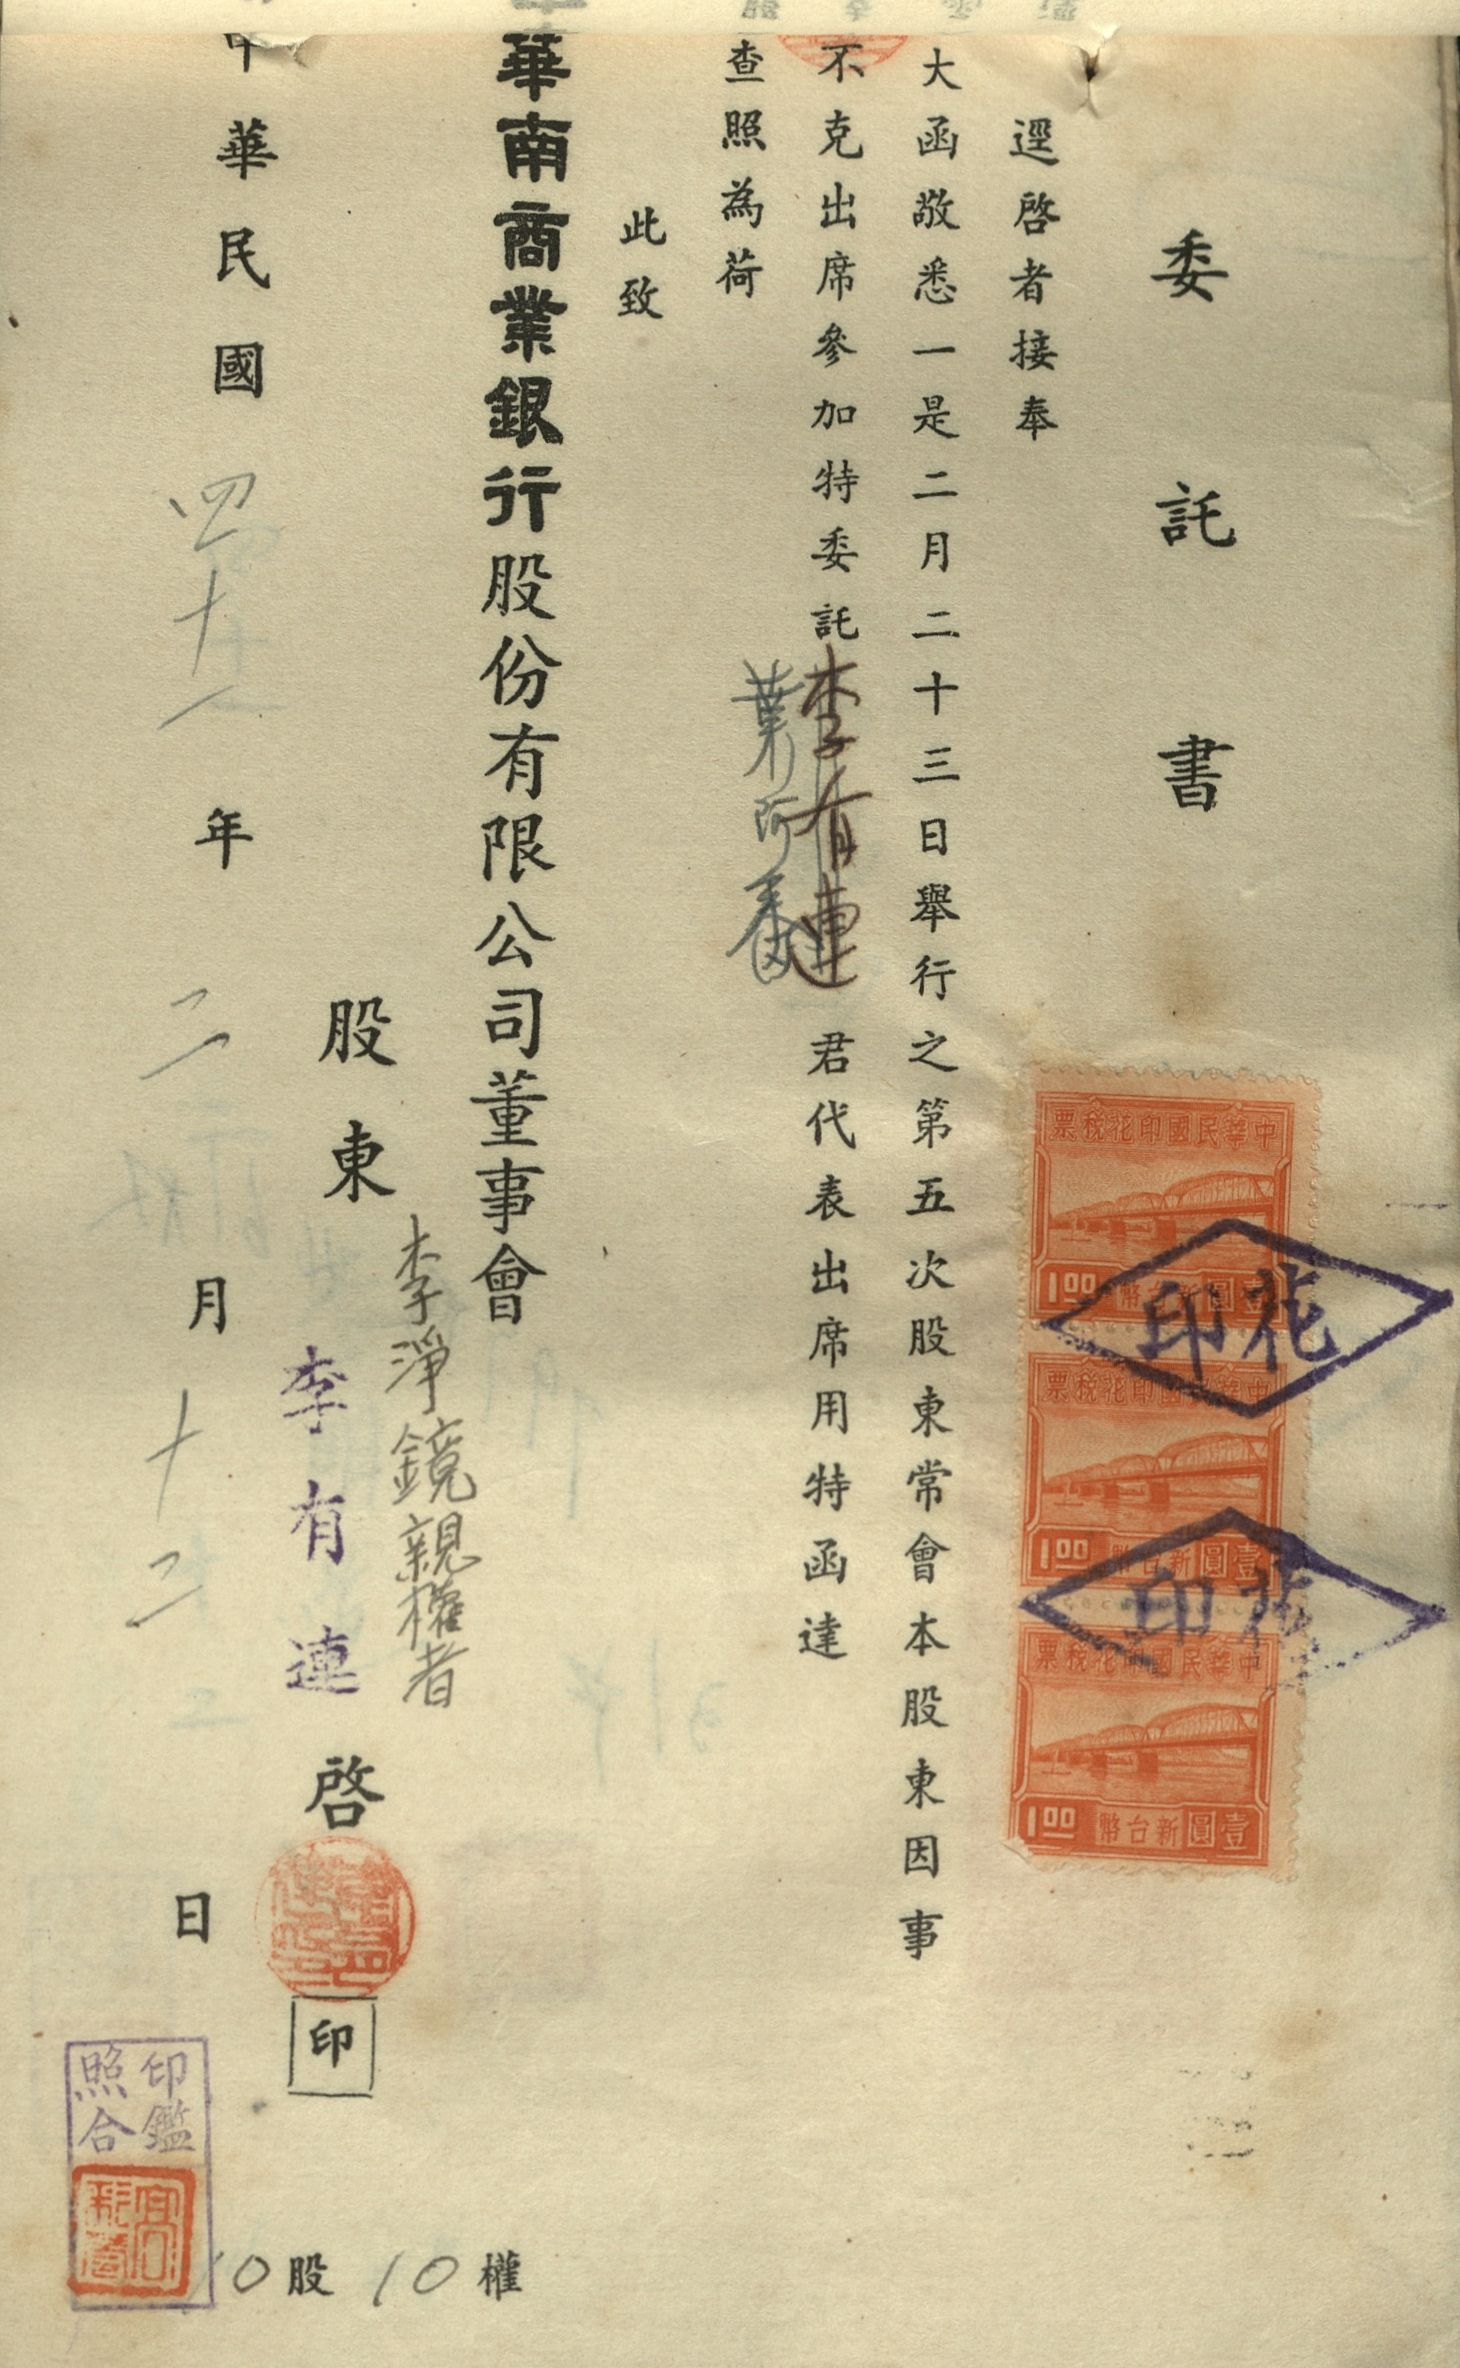 委託書
逕啓者接奉
大函敬悉一是二月二十三日舉行之第五次股東常會本股東因事
不克出席參加特委託李有連君代表出席用特函達
葉阿
查照為荷
此致
華南商業銀行股份有限公司董事會
李淨鏡親權者
股東李有連啓
印
中華民國四十一年二月十二日
印鑑
照合
10股10權
中華民國印花稅票
1.00
壹圓新台幣
花印
中華民國印花稅票
1.00
壹圓新台幣
花印
中華民國印花稅票
1.00
壹圓新台幣